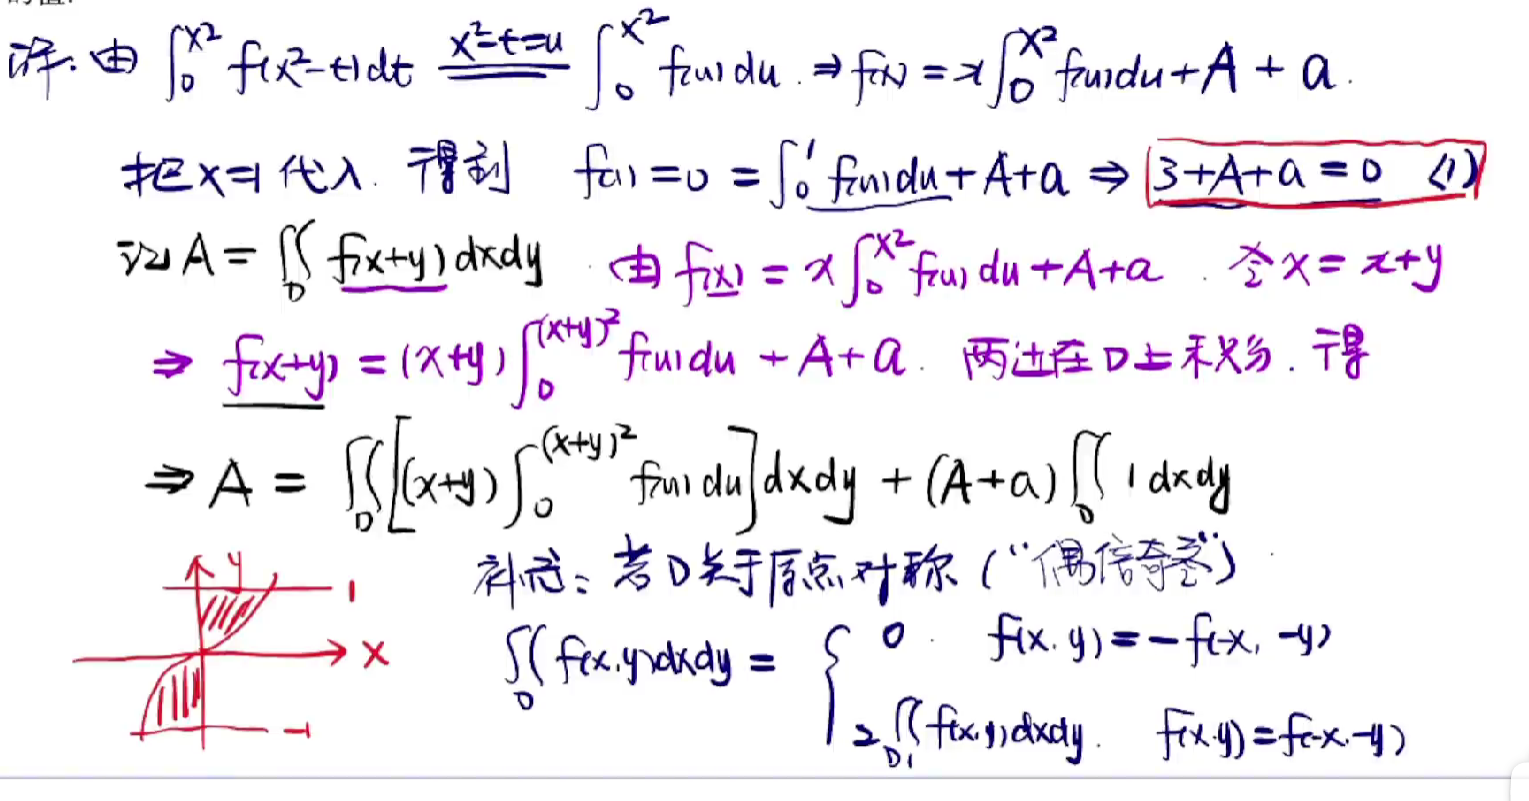 解:由 ∫₀^{x²} f(x²-t)dt \xlongequal{x²-t=u} ∫₀^{x²} f(u)du. ⇒ f(x) = x∫₀^{x²} f(u)du + A + a.
把x=1代入. 得到 f(1) = 0 = ∫₀¹ f(u)du + A + a ⇒ 3+A+a=0 (1)
记 A = ∬_D f(x+y)dxdy. 由 f(x) = x∫₀^{x²} f(u)du + A+a. 令 x = x+y
⇒ f(x+y) = (x+y)∫₀^{(x+y)²} f(u)du + A+a. 两边在D上求积分. 得
⇒ A = ∬_D [(x+y)∫₀^{(x+y)²} f(u)du]dxdy + (A+a)∬_D 1dxdy
补充: 若D关于原点对称 ("偶倍奇零")
∬_D f(x,y)dxdy = { 0. f(x,y) = -f(-x,-y)
2∬_{D₁} f(x,y)dxdy. f(x,y) = f(-x,-y)
y
1
x
-1